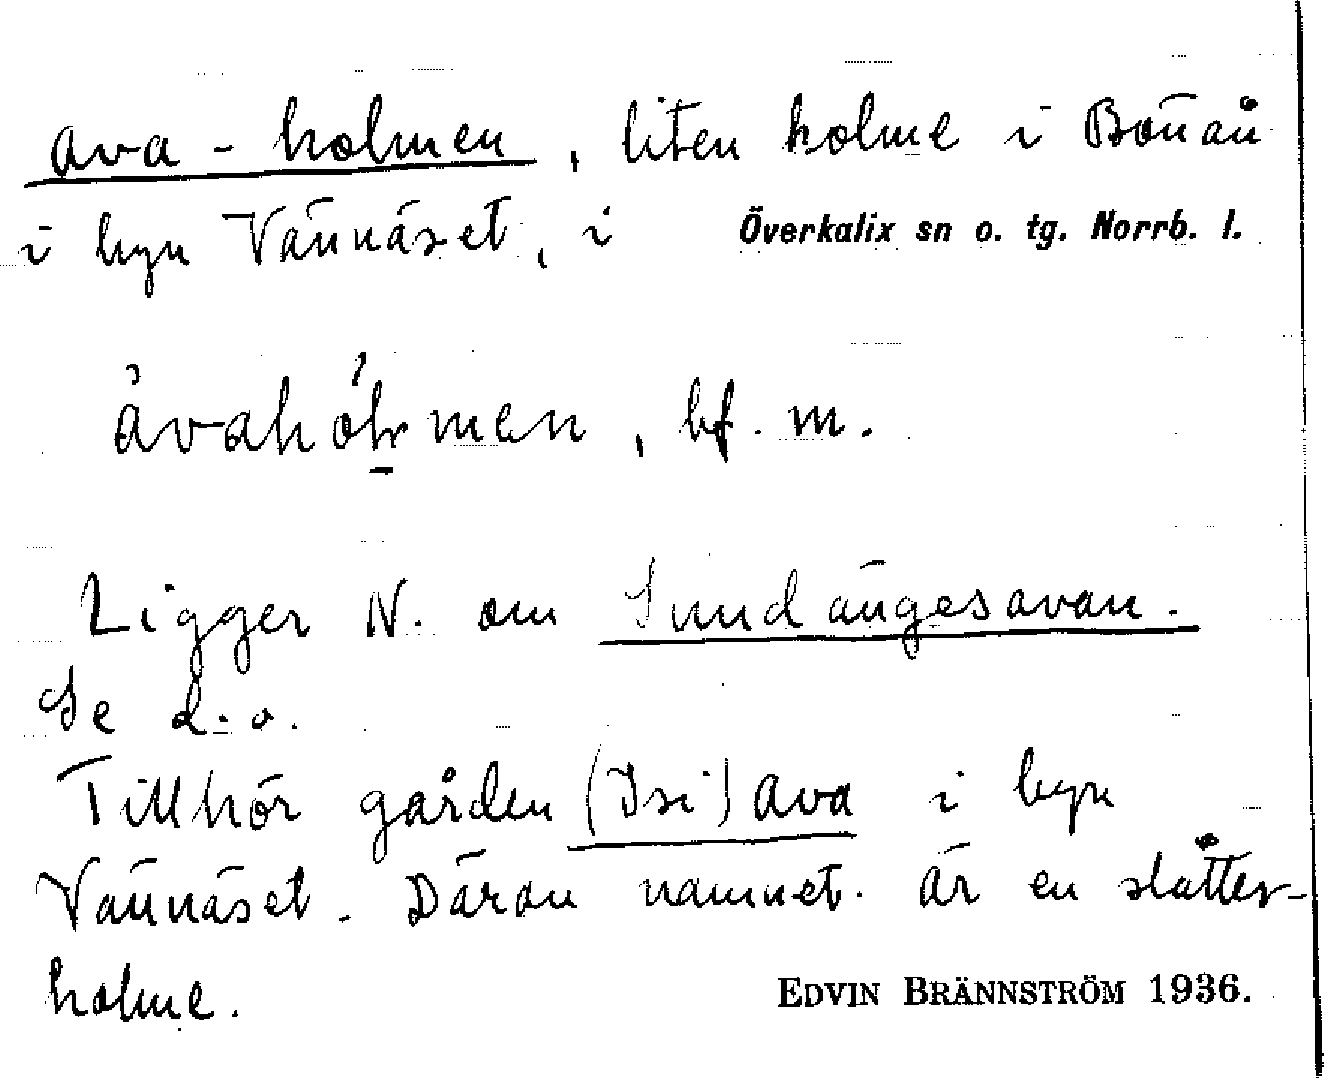 ava-holmen, liten holme i Bönån
i byn Vännäset, i Överkalix sn o. tg. Norrb. l.
, bf. m.
Ligger N. om Sundängesavan.
Se d. o.
Tillhör gården (Isi) ava i byn
Vännäset. Därav namnet. Är en slåtter-
holme.
EDVIN BRÄNNSTRÖM 1936.